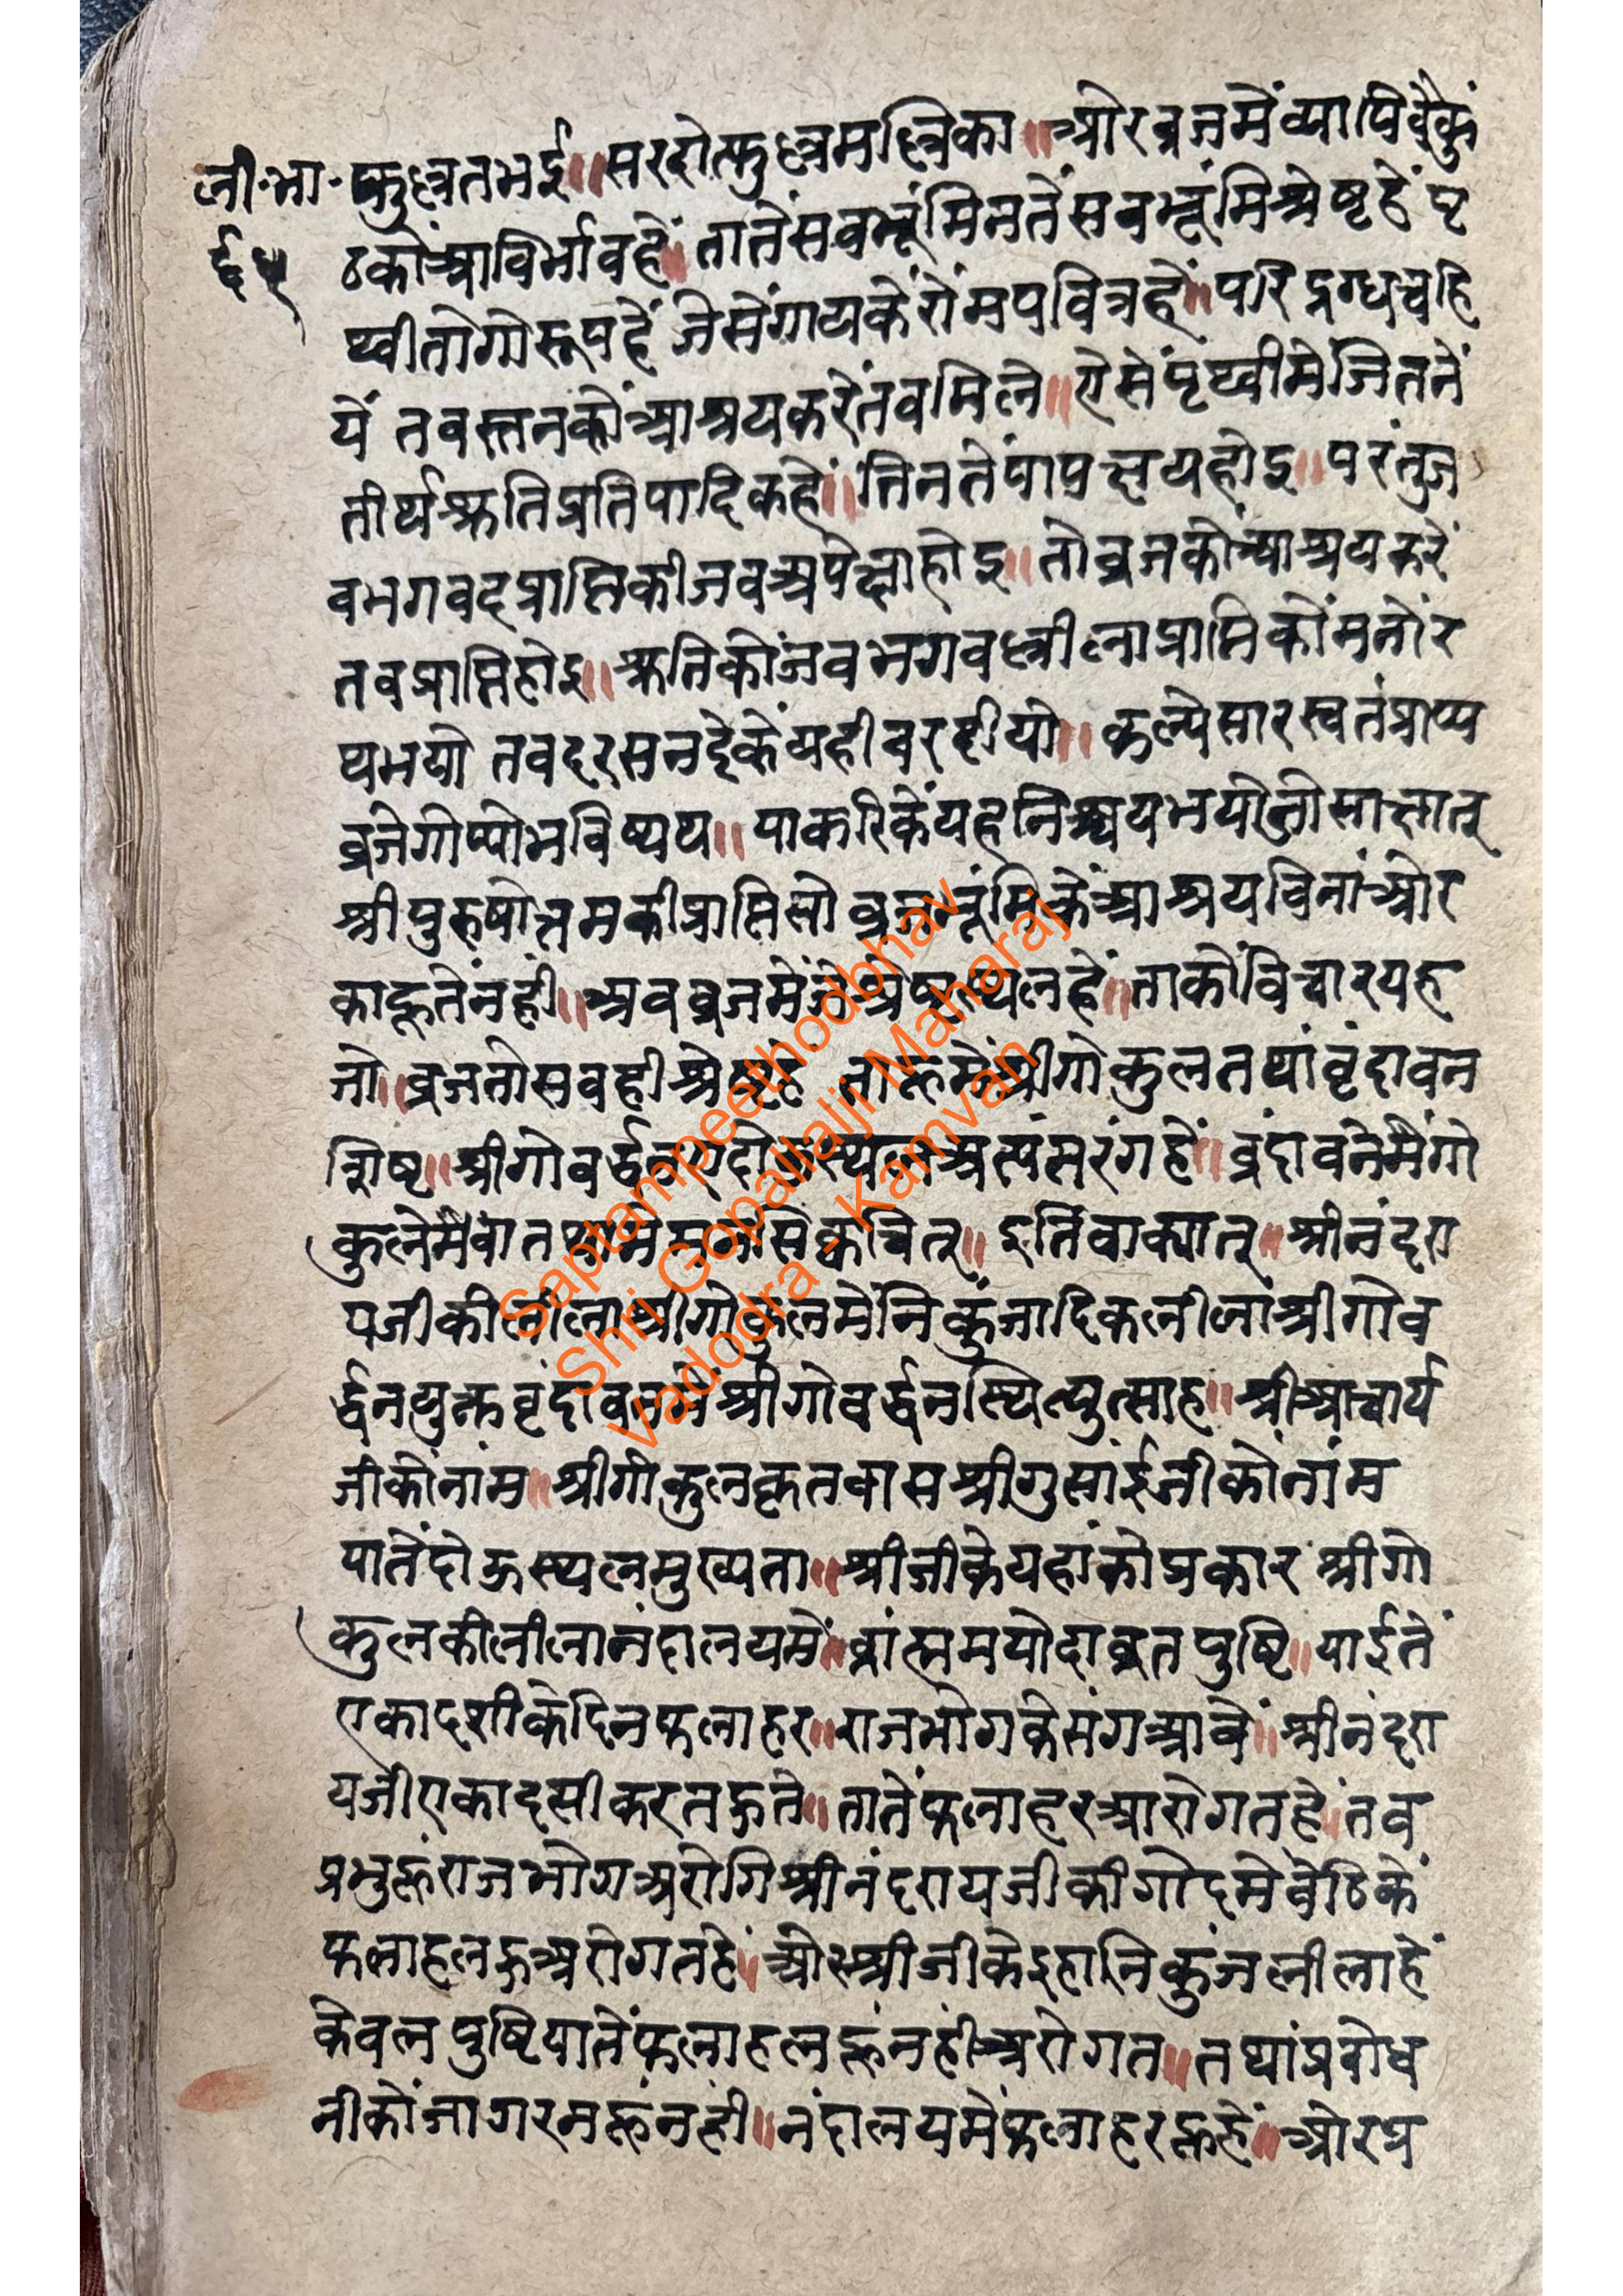 ली·भा· फुल्लत भई॥ सरदोत्फुल्लमल्लिका॥ ओर व्रजमें व्यापि वैकुं
६५ ठकों आविर्भाव हें॥ तातें सब भूंमिनतें सब भूंमि श्रेष्ट हें पृ
थ्वी तो गोरूप हें जेसें गायकें रोंम पवित्र हें॥ परि दुग्ध चहि
यें तब स्तनकों आश्रय करें तब मिले॥ ऐसें पृथ्वीमे जितनें
तीर्थ श्रुति प्रतिपादिक हें॥ तिनतें पाप क्षय होइ॥ परंतु ज
ब भगवद प्राप्तिकी जब अपेक्षा होइ॥ तो व्रजकों आश्रय करें
तब प्राप्ति होइ॥ श्रुतिकों जब भगवल्लीला प्राप्तिकों मनोंर
थ भयो तब दरसन देकें यही बर दीयो॥ कल्पे सारस्वतं प्राप्य
व्रजे गोप्यो भविष्यथ॥ याकरिकें यह निश्चय भयो जो साक्षात्
श्री पुरुषोत्तमकी प्राप्ति तो व्रजभूंमिकें आश्रय विनां ओर
काहूतें नहीं॥ अब व्रजमें जे श्रेष्ट स्थल हें॥ ताकों विचार यह
जो॥ व्रज तो सबही श्रेष्ट हें ताहूमें श्रीगोकुल तथां वृंदावन
श्रीगोवर्द्धन ए दोऊ स्थल अत्यंतरंग हें॥ वृंदावनेमैगो
कुलेमैवा क्वचित्॥ इति वाक्यात्॥ श्रीनंदरा
यजीकी लीला श्रीगोकुलमें निकुंजादिक लीलां श्रीगोव
र्द्धन युक्त वृंदावनमें श्रीगोवर्द्धनस्थित्युत्साह॥ श्रीआचार्य
जीकों नांम॥ श्रीगोकुलकृतवास श्रीगुसांईजीकों नांम
यातें दोऊ स्थल मुख्यता॥ श्रीजीके यहांको प्रकार श्रीगो
कुलकी लीला नंदालयमें॥ पुष्टि॥ याईतें
एकादशीके दिन फलाहार॥ राजभोगके संग आवें॥ श्रीनंदरा
यजी एकादसी करत हुते॥ तातें फलाहर आरोगत हें॥ तब
प्रभुहूं राजभोग अरोगि श्रीनंदरायजीकी गोदमे बेठिकें
फलाहल हू अरोगत हें॥ ओर श्रीजीके इहां निकुंज लीला हें
केवल पुष्टि यातें फलाहल हूं नहीं अरोगत॥ तथां प्रबोध
नीकों जागरन हूं नहीं॥ नंदालयमें फलाहर हू हें॥ ओर प्र
Saptampeethodbhav
Shri Gopallalji Maharaj
Vadodra - Kamvan